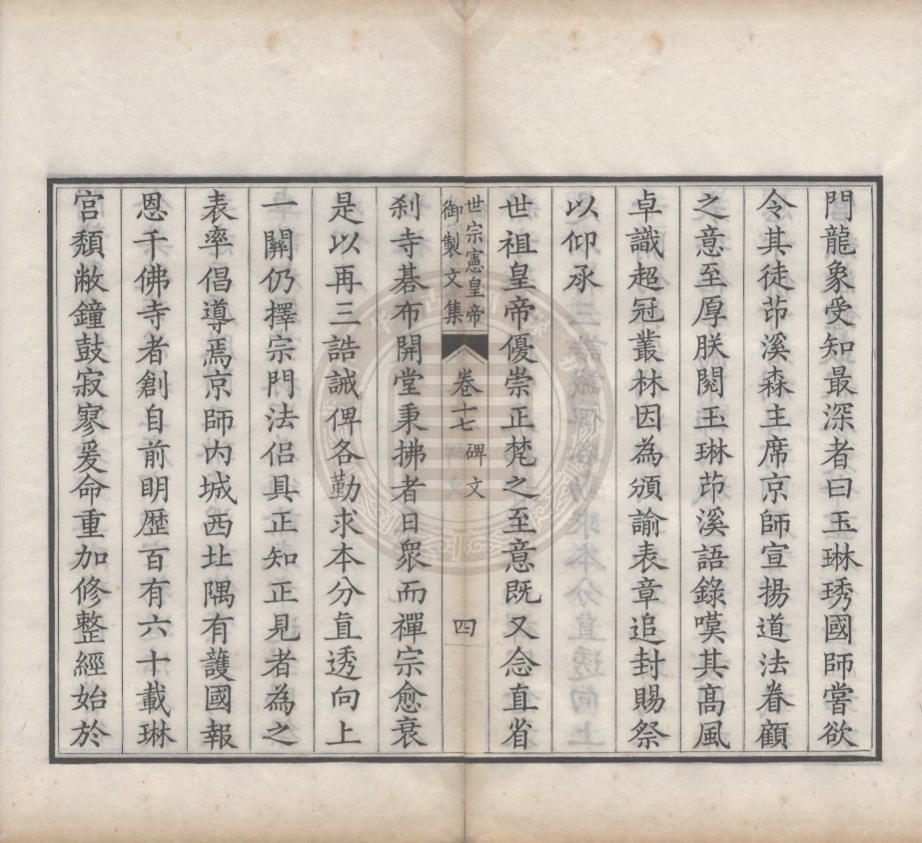 門龍象受知最深者曰玉琳琇國師嘗欲
令其徒茆溪森主席京師宣揚道法眷顧
之意至厚朕閱玉琳茆溪語錄嘆其高風
卓識超冠叢林因為頒諭表章追封賜祭
以仰承
世祖皇帝優崇正梵之至意既又念直省
世宗憲皇帝
御製文集
卷十七
碑文
四
刹寺碁布開堂秉拂者日眾而禪宗愈衰
是以再三誥誡俾各勤求本分直透向上
一關仍擇宗門法侶具正知正見者為之
表率倡導焉京師內城西北隅有護國報
恩千佛寺者創自前明歷百有六十載琳
宮頹敝鐘鼓寂寥爰命重加修整經始於